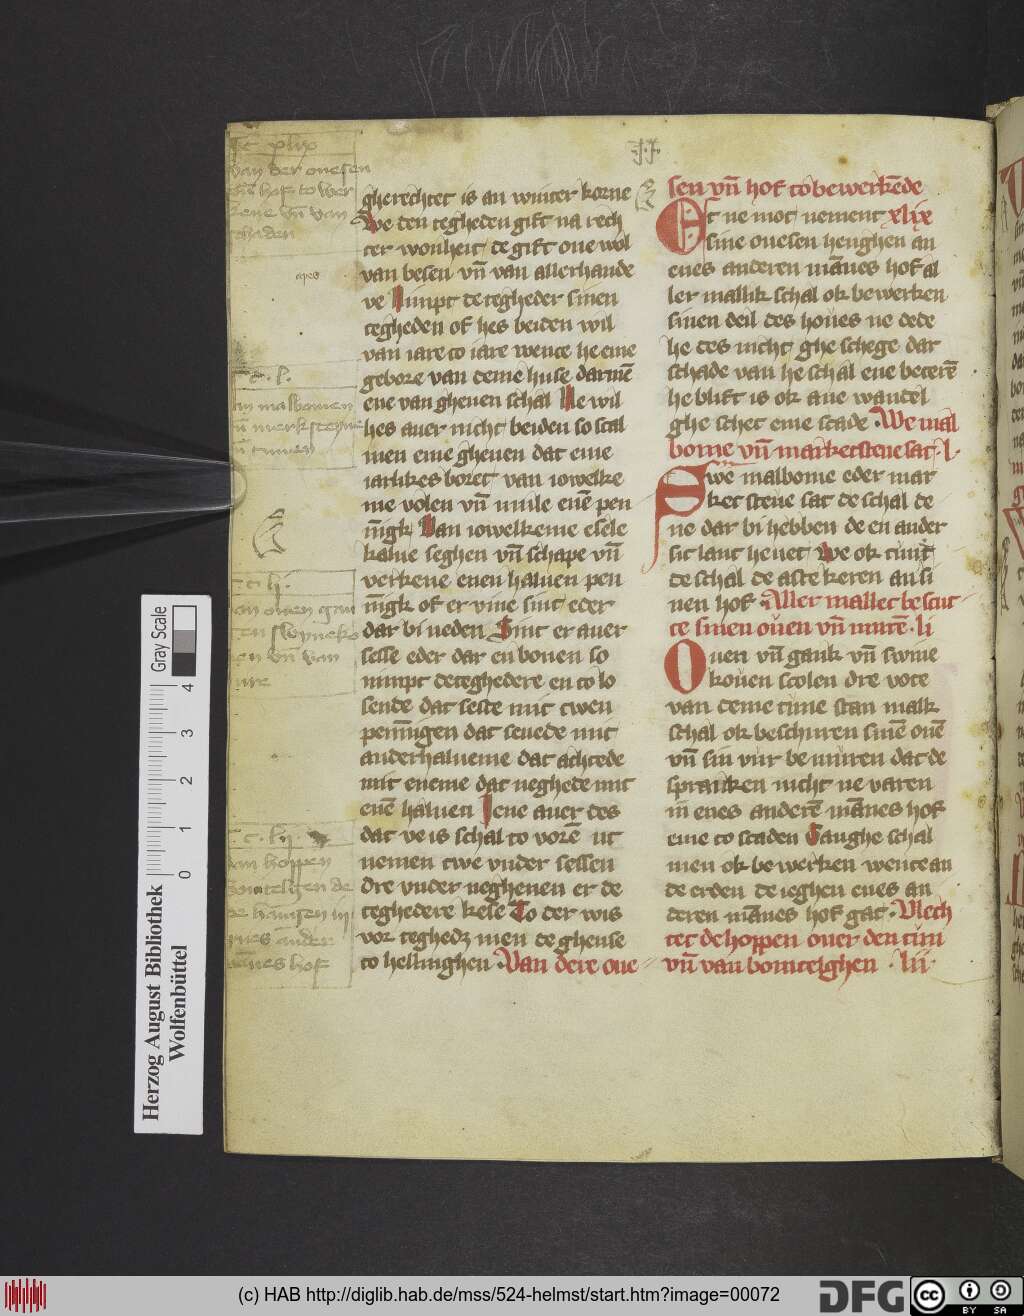 II
gherechtet is an winter korne
We den tegheden gift na rech
ter wonheit de gift oue wol
van besen vn̄ van allerhande
ve Nimpt de tegheder sinen
tegheden of hes beiden wil
van iare to iare wente he eme
gebore van deme huse darmē
ene van gheuen schal Ne wil
hes auer nicht beiden so scal
men eme gheuen dat eme
iarlikes boret van iowelke
me volen vn̄ mule enē pen
nīgk Van iowelkeme esele
kalue seghen vn̄ schape vn̄
verkene enen haluen pen
nīgk of er viue sint eder
dar bi neden Sint er auer
sesse eder dar en bouen so
nimpt de teghedere en to lo
sende dat seste mit twen
pennīgen dat seuede mit
anderhalueme dat achtede
mit eneme dat neghede mit
enē haluen Jene auer des
dat ve is schal to vorē ut
nemen twe vnder sessen
dre vnder neghenen er de
teghedere kese To der wis
vor teghedꝫ men de ghense
to hellinghen Van dere oue
sen vn̄ hof to bewerkēde
Et ne mot nement xlix
sine ouesen henghen an
enes anderen māues hof al
ler mallik schal ok bewerken
sinen deil des houes ne dede
he des nicht ghe schege dar
schade van he schal ene beterē
he blift is ok ane wandel
ghe schet eme scade We mal
bome vn̄ markerstene sat l
Swe malbome eder mar
ket stene sat de schal de
ne dar bi hebben de en ander
sit lant heuet We ok tunit
de schal de aste keren an si
nen hof Aller mallec bescut
te sinen ouen vn̄ murē li
Ouen vn̄ gank vn̄ swine
kouen scolen dre vote
van deme tune stan malk
schal ok beschuren sinē ouē
vn̄ sin vur be muren dat de
spranken nicht ne varen
in enes anderē mānes hof
eme to scaden Gaughe schal
men ok be werken wente an
de erden de ieghen enes an
deren mānes hof gat Vlech
tet de hoppen ouer den tun
vn̄ van bomtelghen lii
c xlix
van der ouesen
hof to wer
kene vn̄ van
c. l.
malbomen
c. li.
c. lii
van hoppen
bomtelgen de
hof
Herzog August Bibliothek
Wolfenbüttel
0 1 2 3 4
Gray Scale
(c) HAB http://diglib.hab.de/mss/524-helmst/start.htm?image=00072
DFG
cc BY SA